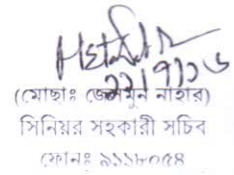 ২১/৭/১৬
(মোছাঃ জেসমুন নাহার)
সিনিয়র সহকারী সচিব
ফোনঃ ৯১১৮০৫৪